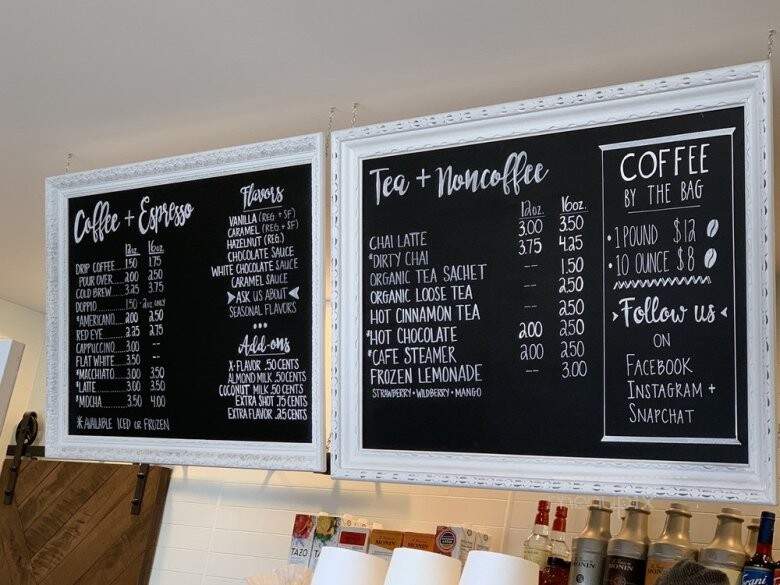 Coffee + Espresso
12oz. 16oz.
DRIP COFFEE 1.50 1.75
POUR OVER 2.00 2.50
COLD BREW 3.25 3.75
DOPPIO 1.50 - 2oz ONLY
*AMERICANO 2.00 2.50
RED EYE 2.25 2.75
CAPPUCCINO 3.00 --
FLAT WHITE 3.50 --
*MACCHIATO 3.00 3.50
*LATTE 3.00 3.50
*MOCHA 3.50 4.00
*AVAILABLE ICED OR FROZEN
Flavors
VANILLA (REG. + SF)
CARAMEL (REG. + SF)
HAZELNUT (REG.)
CHOCOLATE SAUCE
WHITE CHOCOLATE SAUCE
CARAMEL SAUCE
ASK US ABOUT
SEASONAL FLAVORS
Add-ons
X-FLAVOR .50 CENTS
ALMOND MILK .50 CENTS
COCONUT MILK .50 CENTS
EXTRA SHOT .75 CENTS
EXTRA FLAVOR .25 CENTS
Tea + Noncoffee
12oz. 16oz.
CHAI LATTE 3.00 3.50
*DIRTY CHAI 3.75 4.25
ORGANIC TEA SACHET -- 1.50
ORGANIC LOOSE TEA -- 2.50
HOT CINNAMON TEA -- 2.50
*HOT CHOCOLATE 2.00 2.50
*CAFE STEAMER 2.00 2.50
FROZEN LEMONADE -- 3.00
STRAWBERRY • WILDBERRY • MANGO
COFFEE
BY THE BAG
• 1 POUND $12
• 10 OUNCE $8
Follow us
ON
FACEBOOK
INSTAGRAM +
SNAPCHAT
TAZO
MONIN
MONIN
MONIN